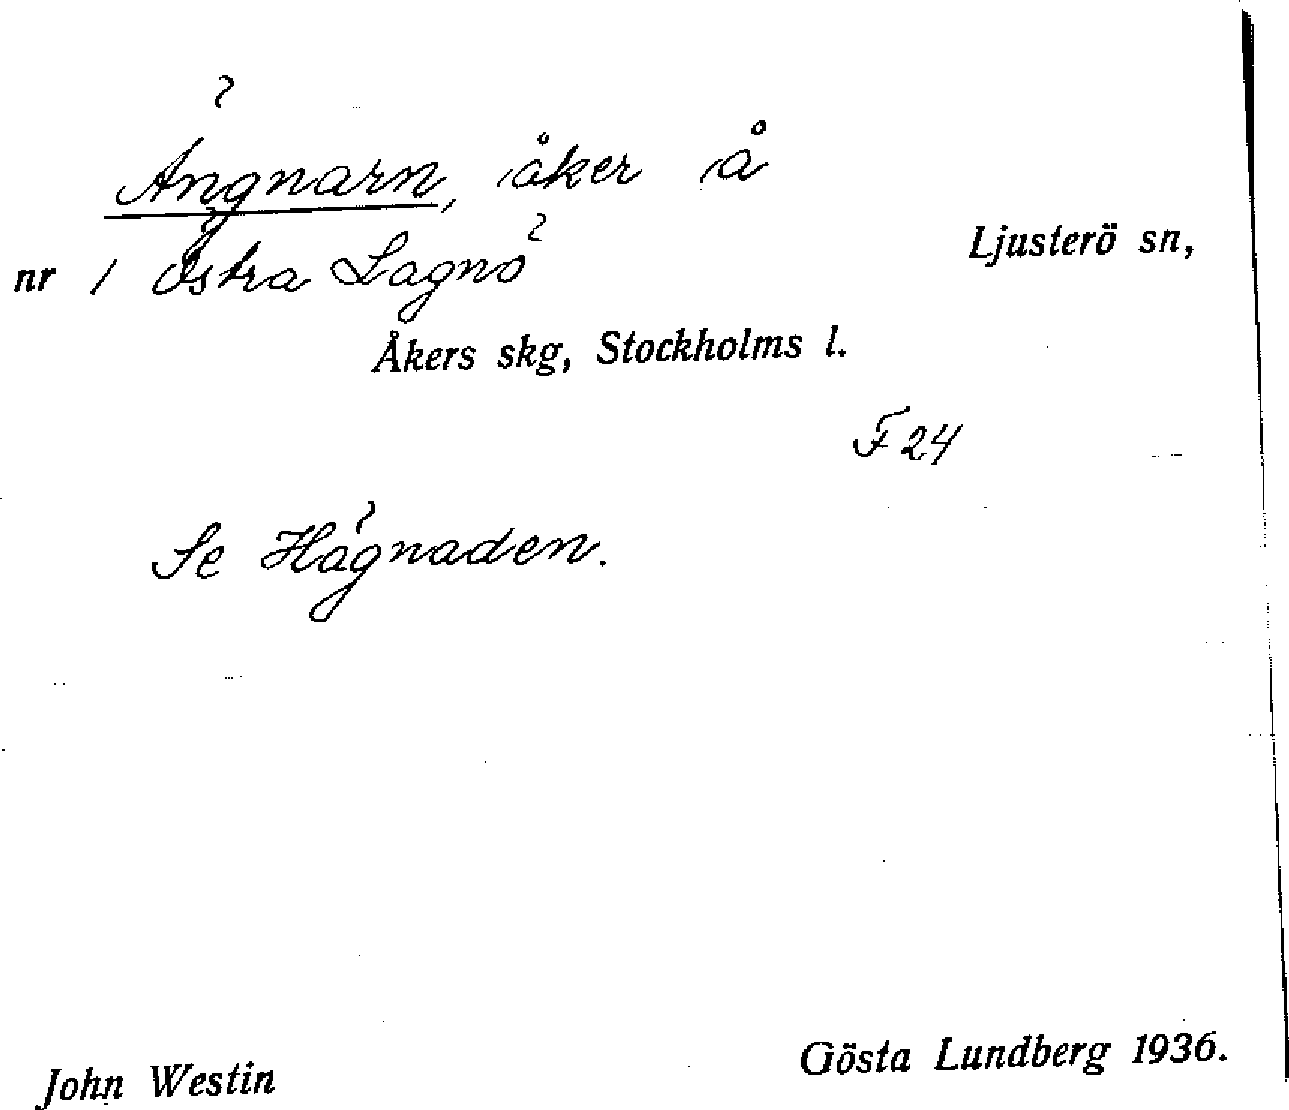 Ängnarn, åker å
nr 1 Östra Lagnö
Ljusterö sn,
Åkers skg, Stockholms l.
F 24
Se Hägnaden.
John Westin
Gösta Lundberg 1936.